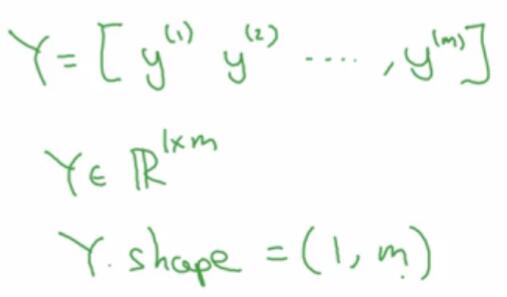 Y = [ y^(1) y^(2) ...., y^(m) ]
Y ∈ ℝ^1×m
Y.shape = (1, m)